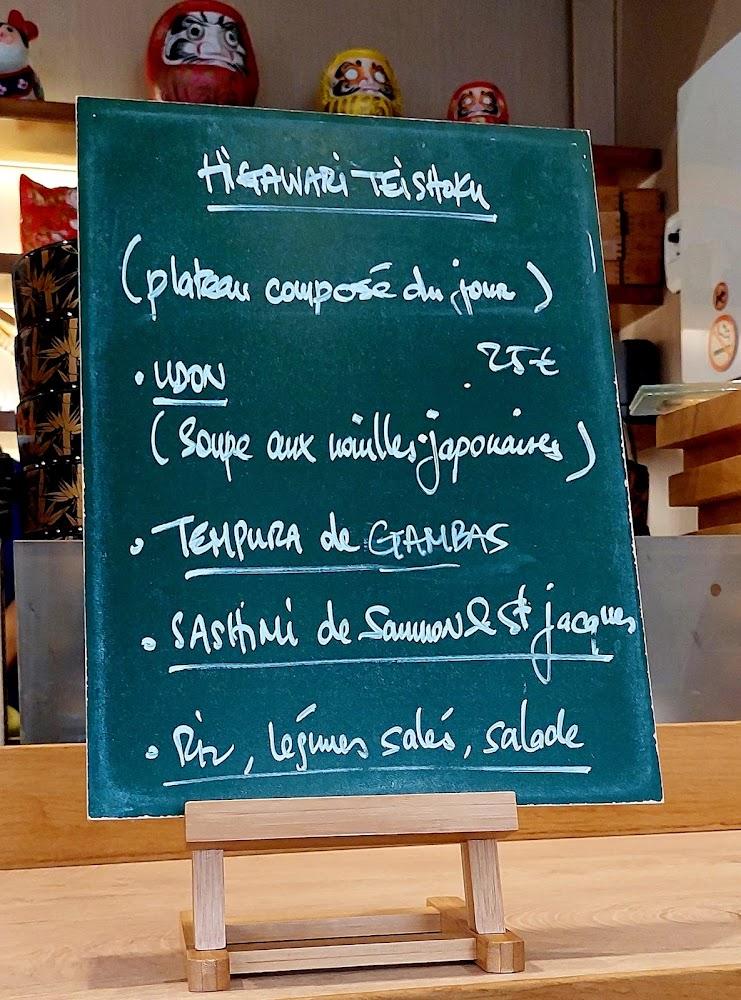 HIGAWARI TEISHOKU
(plateau composé du jour)
• UDON 25€
(Soupe aux nouilles japonaises)
• TEMPURA de GAMBAS
• SASHIMI de Saumon & St jacques
• Riz, légumes salés, salade